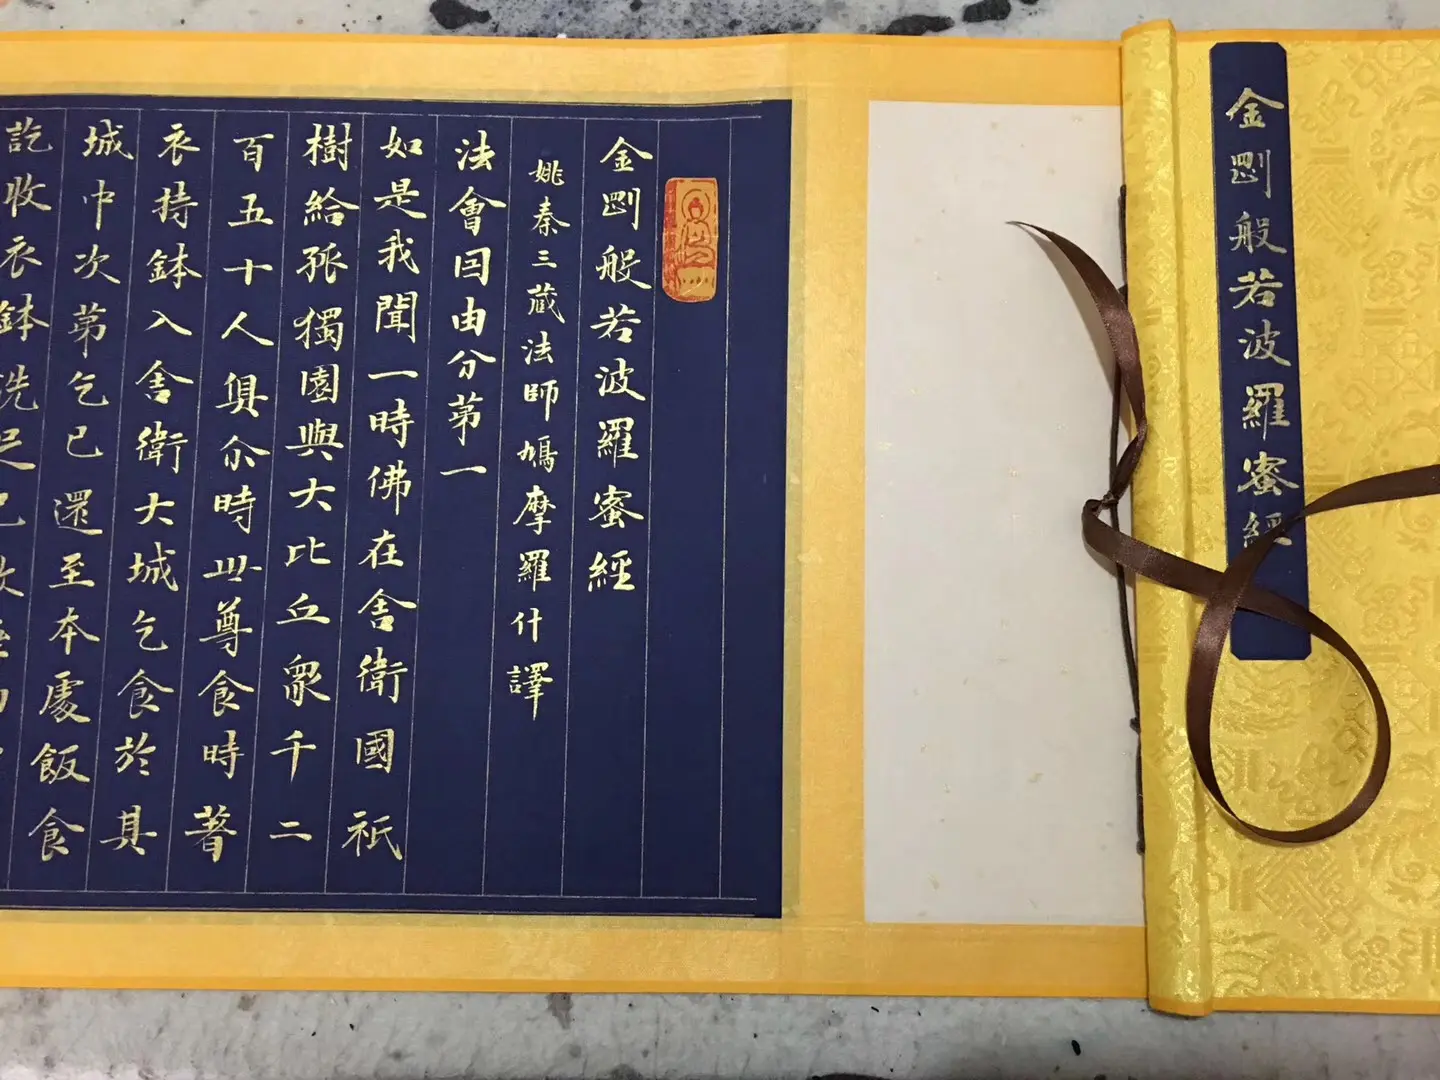 金剛般若波羅蜜經
金剛般若波羅蜜經
姚秦三藏法師鳩摩羅什譯
法會因由分第一
如是我聞一時佛在舍衛國祇
樹給孤獨園與大比丘眾千二
百五十人俱尒時世尊食時著
衣持鉢入舍衛大城乞食於其
城中次第乞已還至本處飯食
訖收衣鉢洗足已